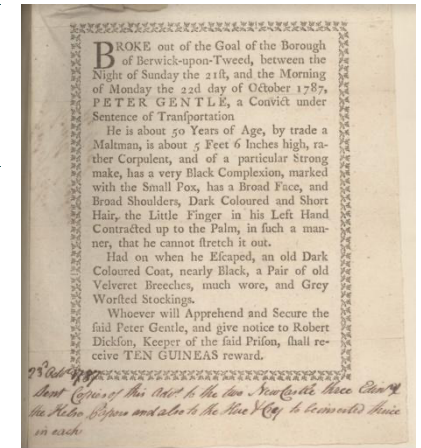 BROKE out of the Goal of the Borough
of Berwick-upon-Tweed, between the
Night of Sunday the 21ſt, and the Morning
of Monday the 22d day of October 1787,
PETER GENTLE, a Convict under
Sentence of Tranſportation
He is about 50 Years of Age, by trade a
Maltman, is about 5 Feet 6 Inches high, ra-
ther Corpulent, and of a particular Strong
make, has a very Black Complexion, marked
with the Small Pox, has a Broad Face, and
Broad Shoulders, Dark Coloured and Short
Hair, the Little Finger in his Left Hand
Contracted up to the Palm, in ſuch a man-
ner, that he cannot ſtretch it out.
Had on when he Eſcaped, an old Dark
Coloured Coat, nearly Black, a Pair of old
Velveret Breeches, much wore, and Grey
Worſted Stockings.
Whoever will Apprehend and Secure the
ſaid Peter Gentle, and give notice to Robert
Dickſon, Keeper of the ſaid Priſon, ſhall re-
ceive TEN GUINEAS reward.
23d Octr 1787
Sent Copies of this Advt to the two NewCastle three Edinr &
the Kelso Papers and also to the Hue & Cry to be inserted thrice
in each